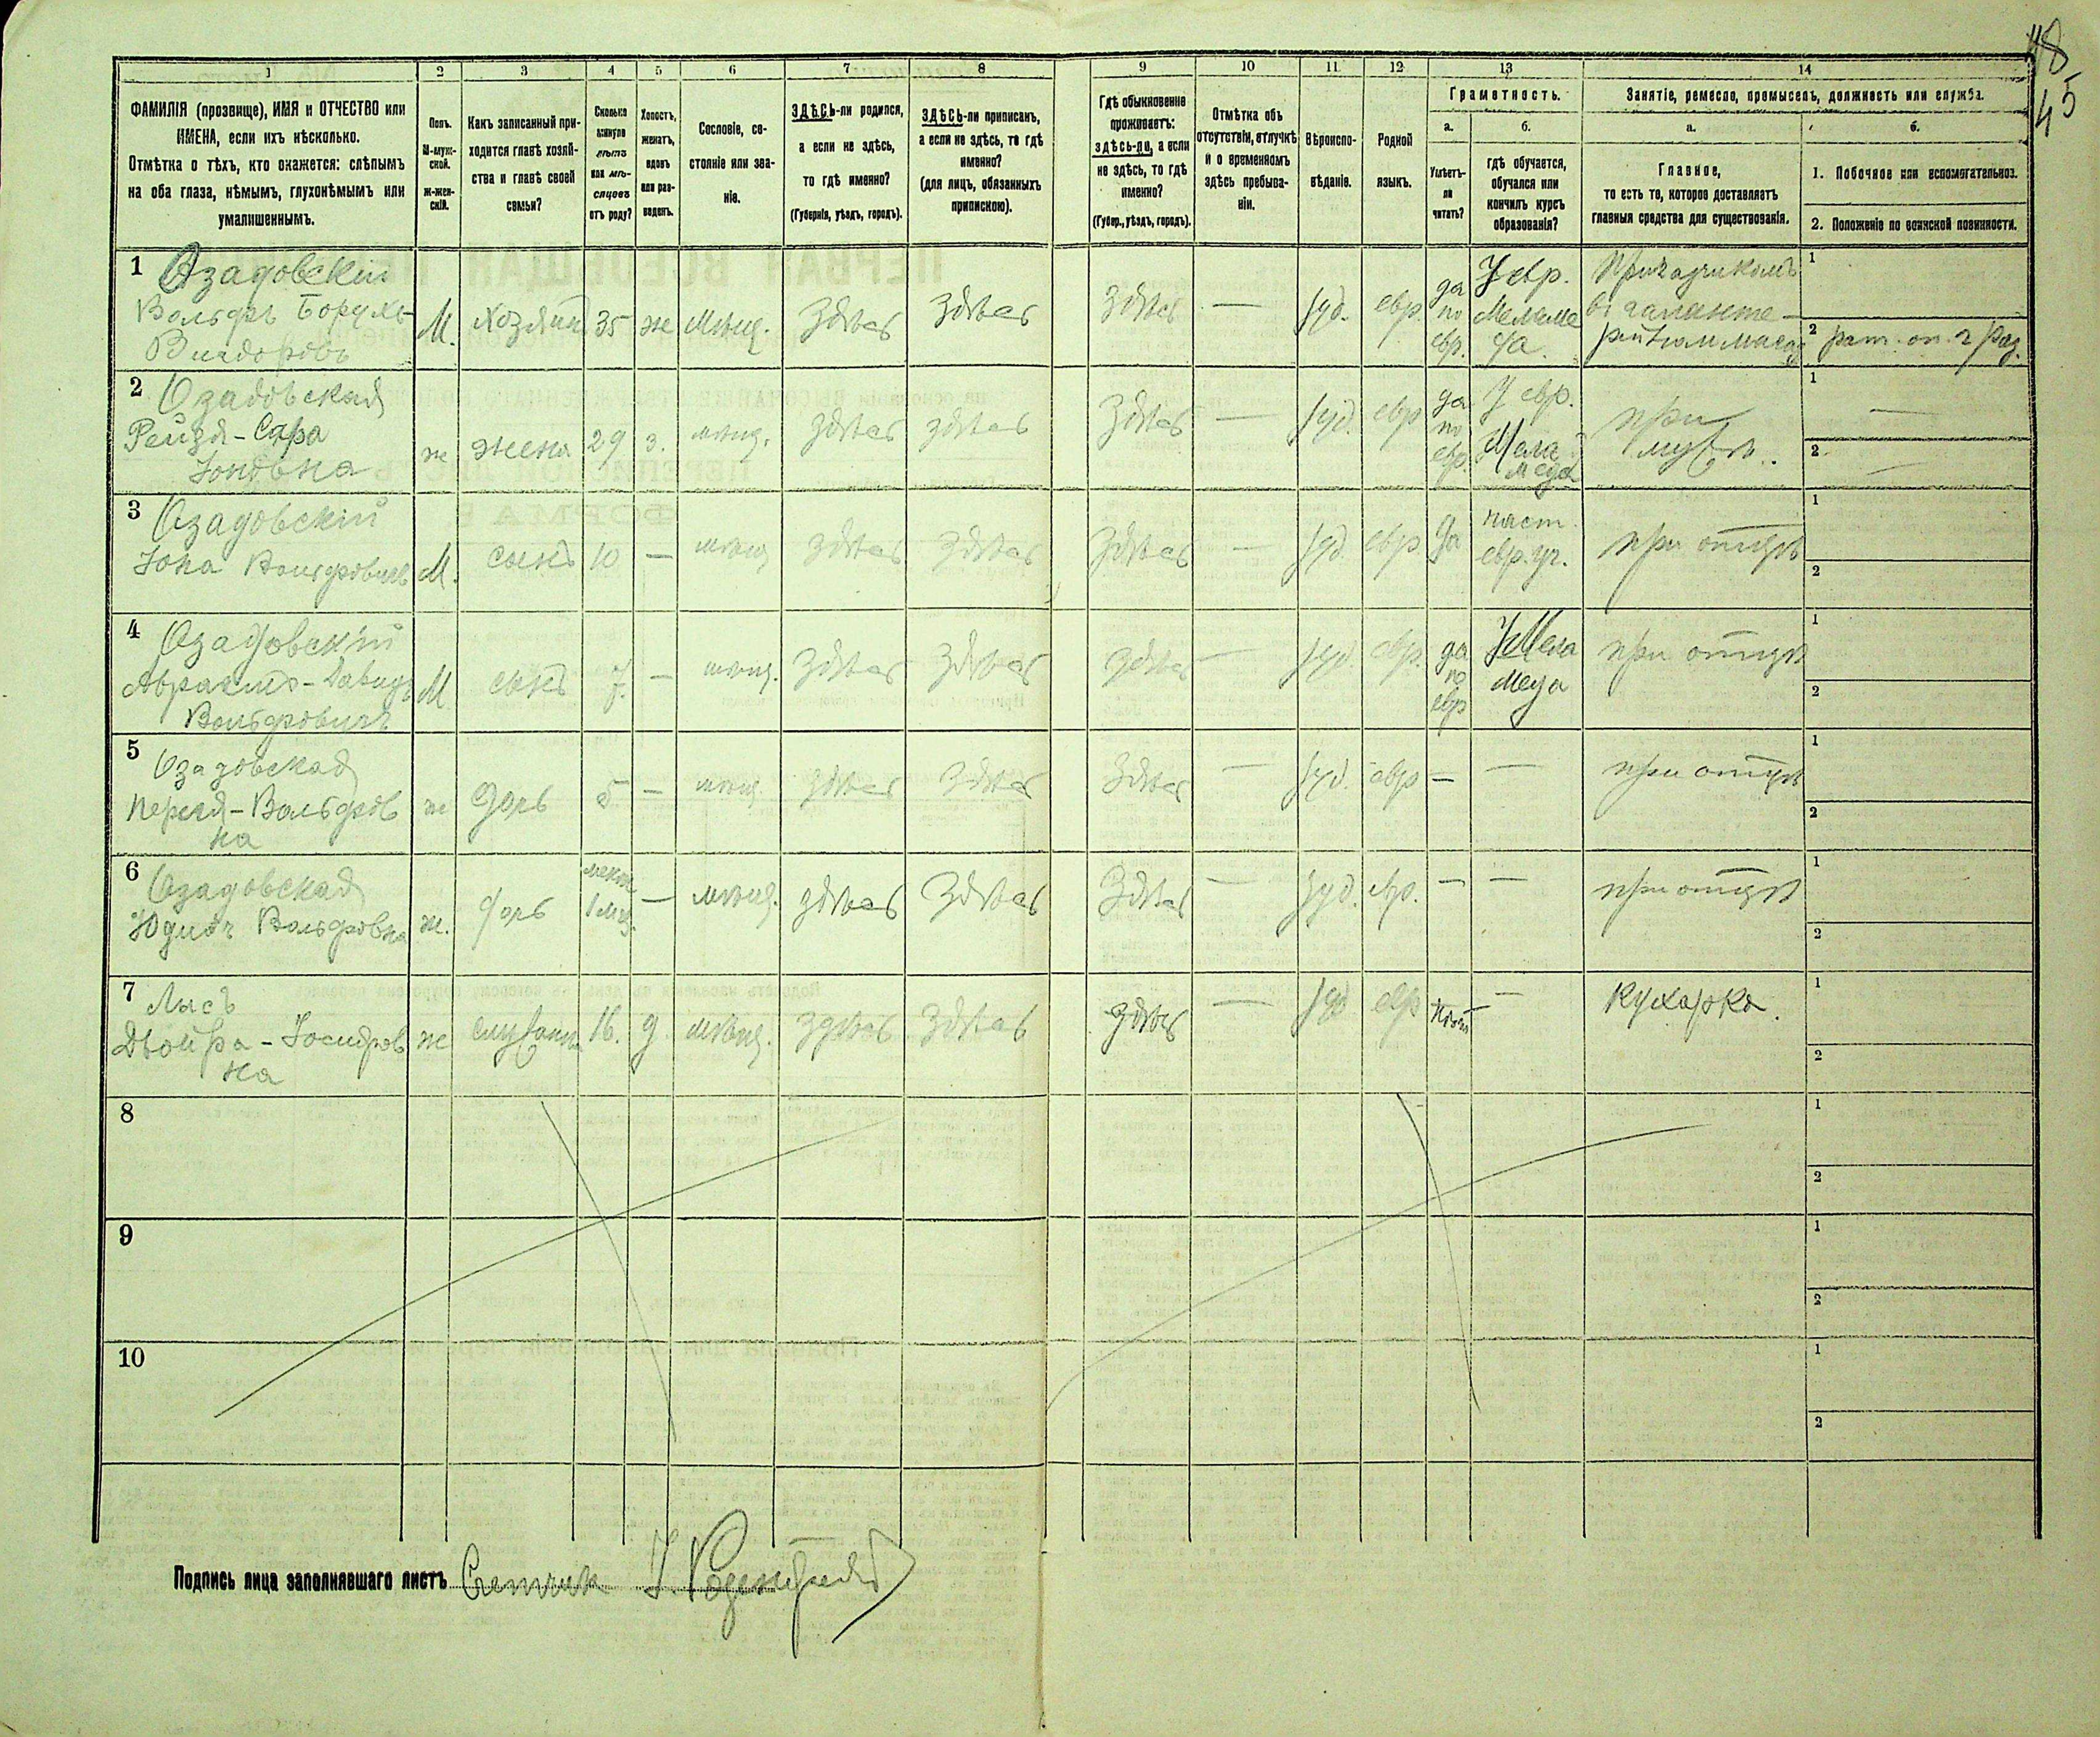 48
45
1 2 3 4 5 6 7 8 9 10 11 12 13 14
ФАМИЛІЯ (прозвище), ИМЯ и ОТЧЕСТВО или
ИМЕНА, если ихъ нѣсколько.
Отмѣтка о тѣхъ, кто окажется: слѣпымъ
на оба глаза, нѣмымъ, глухонѣмымъ или
умалишеннымъ.
Полъ.
М-муж-
ской.
ж-жен-
скій.
Какъ записанный при-
ходится главѣ хозяй-
ства и главѣ своей
семьи?
Сколько
минуло
лѣтъ
или мѣ-
сяцевъ
отъ роду?
Холостъ,
женатъ,
вдовъ
или раз-
веденъ.
Сословіе, со-
стояніе или зва-
ніе.
ЗДѢСЬ-ли родился,
а если не здѣсь,
то гдѣ именно?
(Губернія, уѣздъ, городъ).
ЗДѢСЬ-ли приписанъ,
а если не здѣсь, то гдѣ
именно?
(для лицъ, обязанныхъ
припискою).
Гдѣ обыкновенно
проживаетъ:
здѣсь-ли, а если
не здѣсь, то гдѣ
именно?
(Губер., уѣздъ, городъ).
Отмѣтка объ
отсутствіи, отлучкѣ
и о временномъ
здѣсь пребыва-
ніи.
Вѣроиспо-
вѣданіе.
Родной
языкъ.
Грамотность.
а.
Умѣетъ-
ли
читать?
б.
гдѣ обучается,
обучался или
кончилъ курсъ
образованія?
Занятіе, ремесло, промыселъ, должность или служба.
а.
Главное,
то есть то, которое доставляетъ
главныя средства для существованія.
б.
1. Побочное или вспомогательное.
2. Положеніе по воинской повинности.
1 Озадовскій
Вольфъ Борухъ
М. Хозяинъ 35 ж Мѣщ. Здѣсь Здѣсь Здѣсь — Іуд. евр. да по евр. У евр. Меламеда. Приказчикомъ
2 рат. оп. 2 раз.
2 Озадовская
Рейзя-Сара
Іоновна
ж жена 29 з. мѣщ. Здѣсь здѣсь Здѣсь — Іуд. евр. да по евр. У евр. Меламеда при мужѣ.
3 Озадовскій
Іона Вольфовичъ М. сынъ 10 — мѣщ Здѣсь Здѣсь Здѣсь — Іуд. евр. да част. евр. уч. при отцѣ
4 Озадовскій
Абрамъ-Давидъ
Вольфовичъ
М сынъ 7. — мѣщ. Здѣсь Здѣсь Здѣсь — Іуд. евр. да по евр У Меламеда при отцѣ
5 Озадовская
Перля-Вольфов
на
ж дочь 5. — мѣщ. здѣсь Здѣсь Здѣсь — Іуд. евр — — при отцѣ
6 Озадовская
Юдиѳь Вольфовна ж. дочь 1 мѣщ. здѣсь Здѣсь Здѣсь — Іуд. евр. — — при отцѣ
7 Лысъ
Двойра-Іосифов
на
ж 16. д. мѣщ. Здѣсь Здѣсь Здѣсь — Іуд евр — Кухарка.
8
9
10
Подпись лица заполнявшаго листъ Счетчик